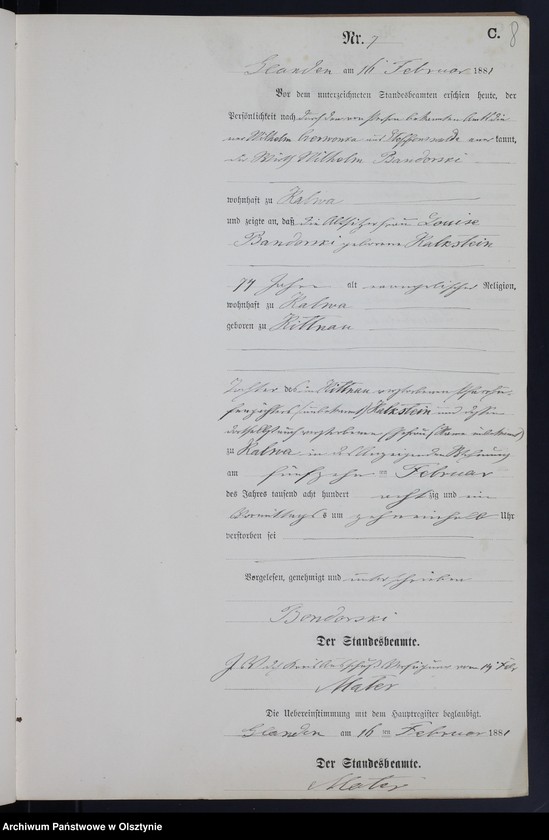 C. 8
Nr. 7
Glanden am 16 Februar 1881
Vor dem unterzeichneten Standesbeamten erschien heute, der
Persönlichkeit nach durch den von Person bekannten
Wilhelm aus kannt,
Wilhelm Bandorski
wohnhaft zu Kalwa
und zeigte an, daß die Altsitzerfrau Louise
Bandorski geborene Kalkstein
77 Jahre alt evangelischer Religion,
wohnhaft zu Kalwa
geboren zu Kittnau
Tochter des in Kittnau verstorbenen
Kalkstein und dessen
verstorbenen
zu Kalwa in des Anzeigenden Wohnung
am fünfzehnten Februar
des Jahres tausend acht hundert achtzig und ein
Vormittags um zehneinhalb Uhr
verstorben sei
Vorgelesen, genehmigt und unterschrieben
Bondorski
Der Standesbeamte.
Mater
Die Uebereinstimmung mit dem Hauptregister beglaubigt.
Glanden am 16ten Februar 1881
Der Standesbeamte.
Mater
Archiwum Państwowe w Olsztynie